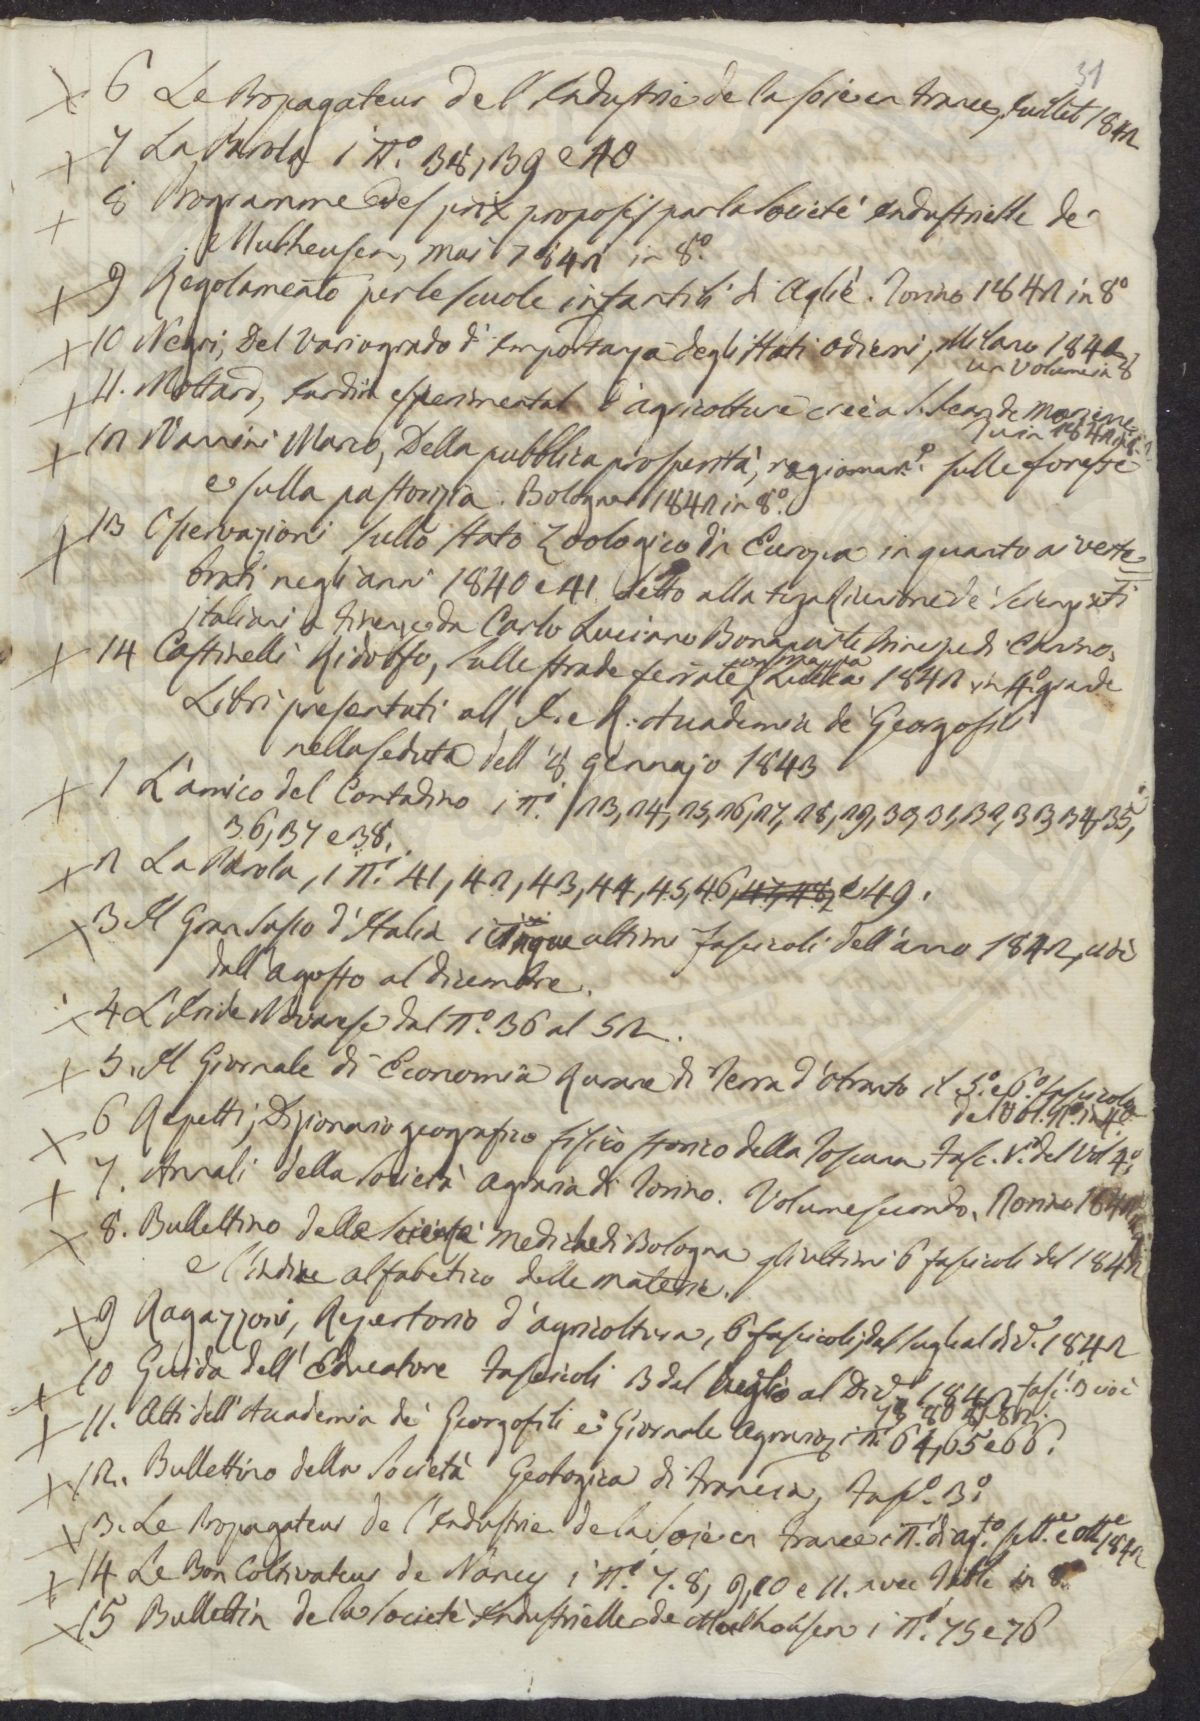 31
× 6 Le Propagateur de l'Industrie de la soie en France, Juillet 1842
× 7 La Parola i N.° 38, 39 e 40
× 8 Programme des prix proposés par la Societé Industrielle de
Mulheusen, mai 1842 in 8.°
× 9 Regolamento per le scuole infantili di Agliè. Torino 1842 in 8°
× 10 Negri, Del vario grado d'importanza degli Stati odierni, Milano 1842
un volume in 8°
× 11. Mottard, Jardin esperimental d'agricolture créé a S. Jean de Morienne
× 12 Nannini Marco, Della pubblica prosperità, ragionam.° sulle foreste
e sulla pastorizia. Bologna 1842 in 8.°
× 13 Osservazioni sullo stato Zoologico di Europa in quanto ai verte
brati negli anni 1840 e 41 detto alla terza Riunione de' Scienziati
italiani a Firenze da Carlo Luciano Bonaparte Principe di Canino.
× 14 Castinelli Ridolfo, sulle strade ferrate con mappa Lucca 1842 in 4.° grande
Libri presentati all' I. e R. Accademia de' Georgofili
nella seduta dell' 8 gennajo 1843
× 1 L'amico del Contadino i N.i 23, 24, 25, 26, 27, 28, 29, 30, 31, 32, 33, 34, 35,
36, 37 e 38.
× 2 La Parola, i N.i 41, 42, 43, 44, 45, 46, 47, 48, e 49.
× 3 Il Gran Sasso d'Italia i cinque ultimi fascicoli dell'anno 1842, cioè
dall'agosto al dicembre.
× 4 L'Iride Novarese dal N.° 36 al 52.
× 5. Il Giornale di Economia Rurale di Terra d'Otranto il 5.° e 6.° fascicolo
× 6 Repetti, Dizionario geografico fisico storico della Toscana Fasc. V.° del Vol 4.°
× 7. Annali della Società Agraria di Torino. Volume secondo, Torino 1842
× 8. Bullettino delle Scienze mediche di Bologna gli ultimi 6 fascicoli del 1842
e l'indice alfabetico delle materie.
× 9 Ragazzoni, Repertorio d'agricoltura, 6 fascicoli, dal luglio al dic.e 1842
× 10 Guida dell' Educatore Fascicoli 3 dal luglio al Dic.e 1842 fasc.i 3 cioè
79 80 81-82.
× 11. Atti dell'Accademia de' Georgofili e Giornale Agrario, i N.i 64, 65 e 66.
× 12. Bullettino della Società Geologica di Francia, Fasc.° 3.°
× 13. Le Propagateur de l'Industrie de la Soie en France i N.i di ag.to sett.e e ott.e 1842
× 14 Le Bon Coltivateur de Nancy i N.i 7. 8, 9, 10 e 11. avec Table in 8.°
× 15 Bulletin de la Societé Industrielle de Mulhousen i N.i 75 e 76